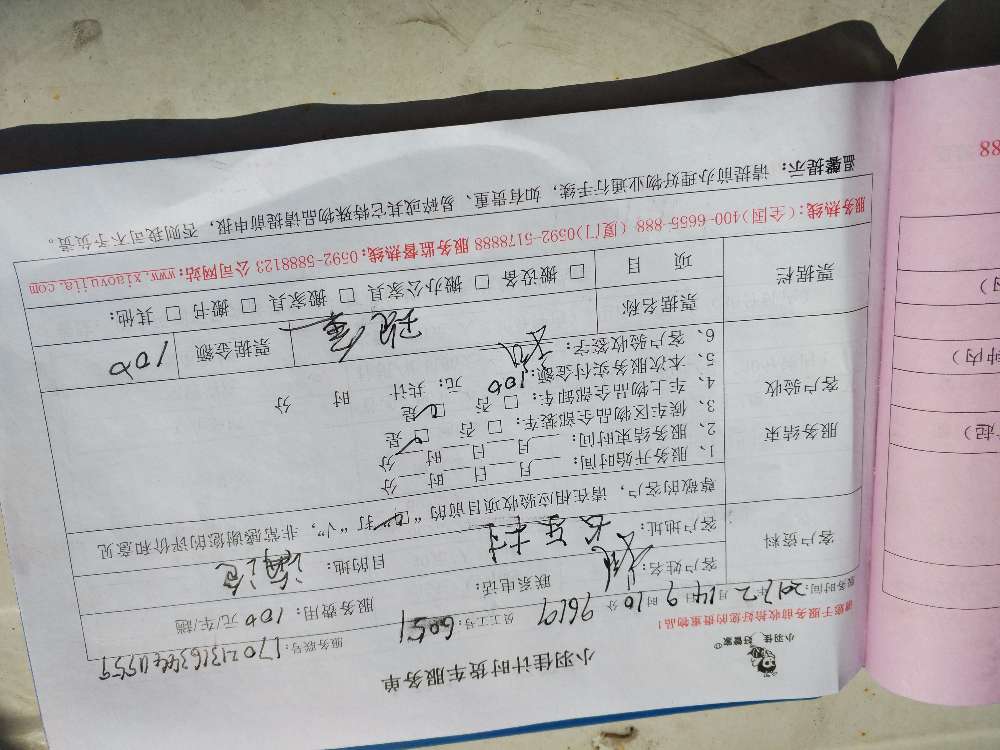 小羽佳 好管家
小羽佳计时货车服务单
请您于服务前收拾好您的贵重物品！
服务联号：
服务时间：2017年2月14日9时10分 9619 员工工号：6051 服务费用：100元/车/趟
客户资料
客户姓名： 联系电话：
客户地址： 目的地：
尊敬的客户，请在相应验收项目前的“□”打“√”，非常感谢您的评价和意见
服务结束
客户验收
1、服务开始时间：＿＿月＿＿日＿＿时＿＿分
2、服务结束时间：＿＿月＿＿日＿＿时＿＿分
3、候车区物品全部装车：□ 否 □ 是
4、车上物品全部卸车：□ 否 □ 是
5、本次服务实付金额：100 元；共计 时 分
6、客户验收签字：
票据栏
票据名称 现金 票据金额 100
项 目 □ 搬设备 □ 搬办公家具 □ 搬家具 □ 搬书 □ 其他：
服务热线：(全国)400-6655-888 (厦门)0592-5178888 服务监督热线：0592-5888123 公司网站：www.xiaoyujia.com
温馨提示：请提前办理好物业通行手续，如有贵重、易碎或其它特殊物品请提前申报，否则我司不予负责。
88